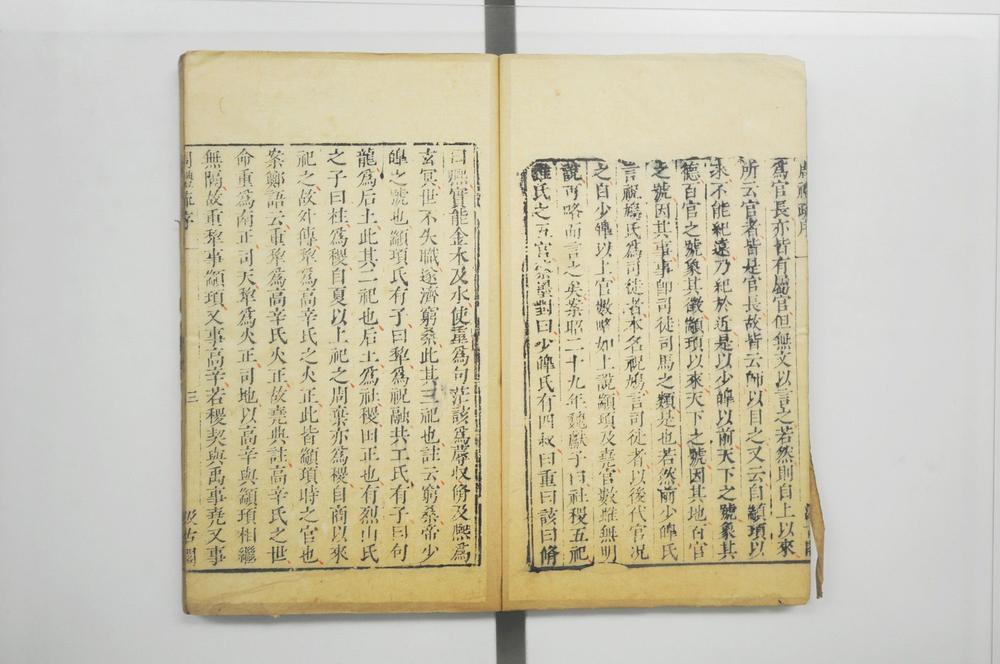 周禮疏序
爲官長亦皆有屬官但無文以言之若然則自上以來
所云官者皆是官長故皆云師以目之又云自顓頊以
來不能紀遠乃紀於近是以少皥以前天下之號象其
德百官之號象其徵顓頊以來天下之號因其地百官
之號因其事事卽司徒司馬之類是也若然前少皥氏
言祝鳩氏爲司徒者本名祝鳩言司徒者以後代官况
之自少皥以上官數略如上說顓頊及堯官數雖無明
說可略而言之矣案昭二十九年魏獻子曰社稷五祀
誰氏之五官蔡墨對曰少皥氏有四叔曰重曰該曰脩
曰熙實能金木及水使重爲句茫該爲蓐收脩及熙爲
玄冥世不失職遂濟窮桑此其三祀也註云窮桑帝少
皥之號也顓頊氏有子曰犂爲祝融共工氏有子曰句
龍爲后土此其二祀也后土爲社稷田正也有烈山氏
之子曰柱爲稷自夏以上祀之周棄亦爲稷自商以來
祀之故外傳犂爲高辛氏之火正此皆顓頊時之官也
案鄭語云重犂爲高辛氏火正故堯典註高辛氏之世
命重爲南正司天犂爲火正司地以高辛與顓頊相繼
無隔故重犂事顓頊又事高辛若稷契與禹事堯又事
周禮疏序 三 汲古閣